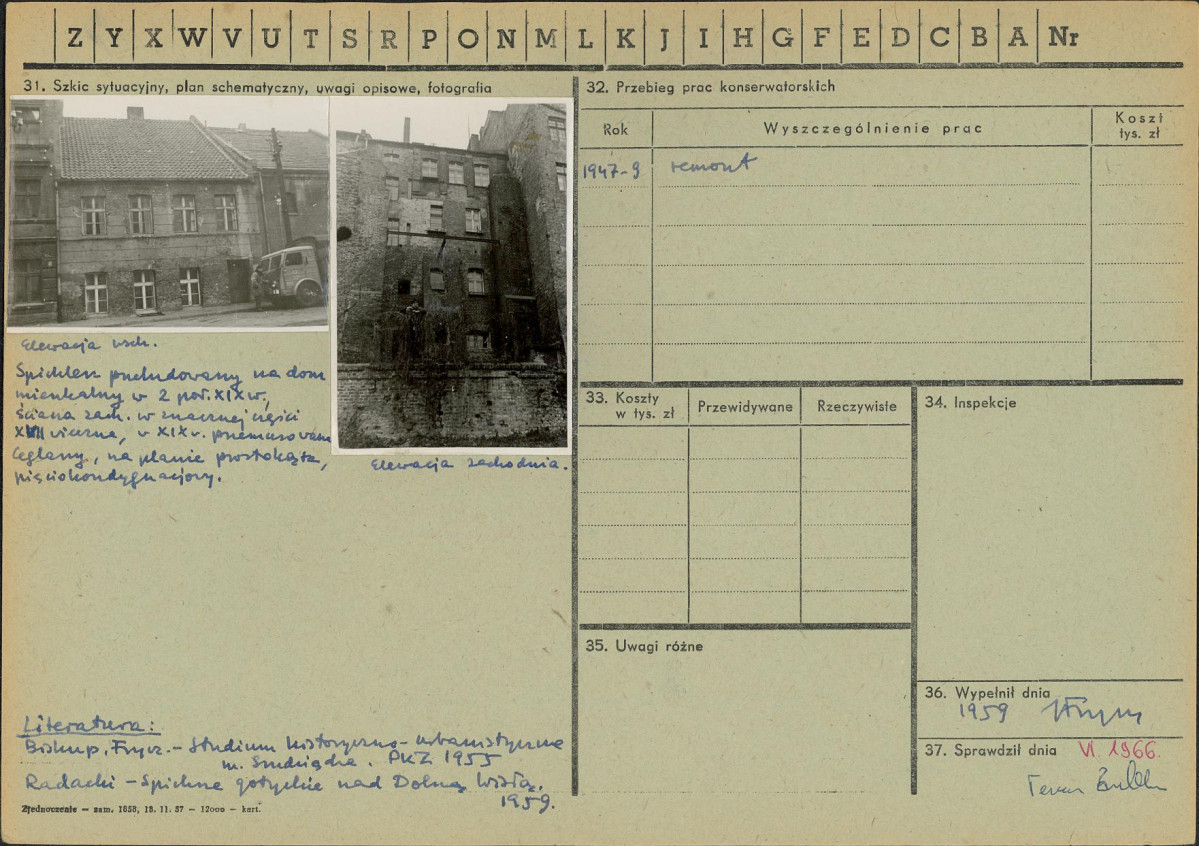 Z Y X W V U T S R P O N M L K J I H G F E D C B A Nr
31. Szkic sytuacyjny, plan schematyczny, uwagi opisowe, fotografia
Elewacja wsch.
Spichlerz przebudowany na dom
mieszkalny w 2 poł. XIX w,
ściana zach. w znacznej części
wieczna, w XIX w. przemurowana
Ceglany, na planie prostokąta,
pięciokondygnacjowy.
Elewacja zachodnia.
Literatura:
Biskup, Frycz. - Studium historyczno-urbanistyczne
m. Grudziądza. PKZ 1955
Radacki - Spichrze gotyckie nad Dolną Wisłą.
1959.
Zjednoczenie — zam. 1858, 18. 11. 57 — 12000 — kart.
32. Przebieg prac konserwatorskich
Rok
Wyszczególnienie prac
Koszt
tys. zł
1947-9 remont
33. Koszty
w tys. zł
Przewidywane
Rzeczywiste
34. Inspekcje
35. Uwagi różne
36. Wypełnił dnia
1959
37. Sprawdził dnia VI. 1966.